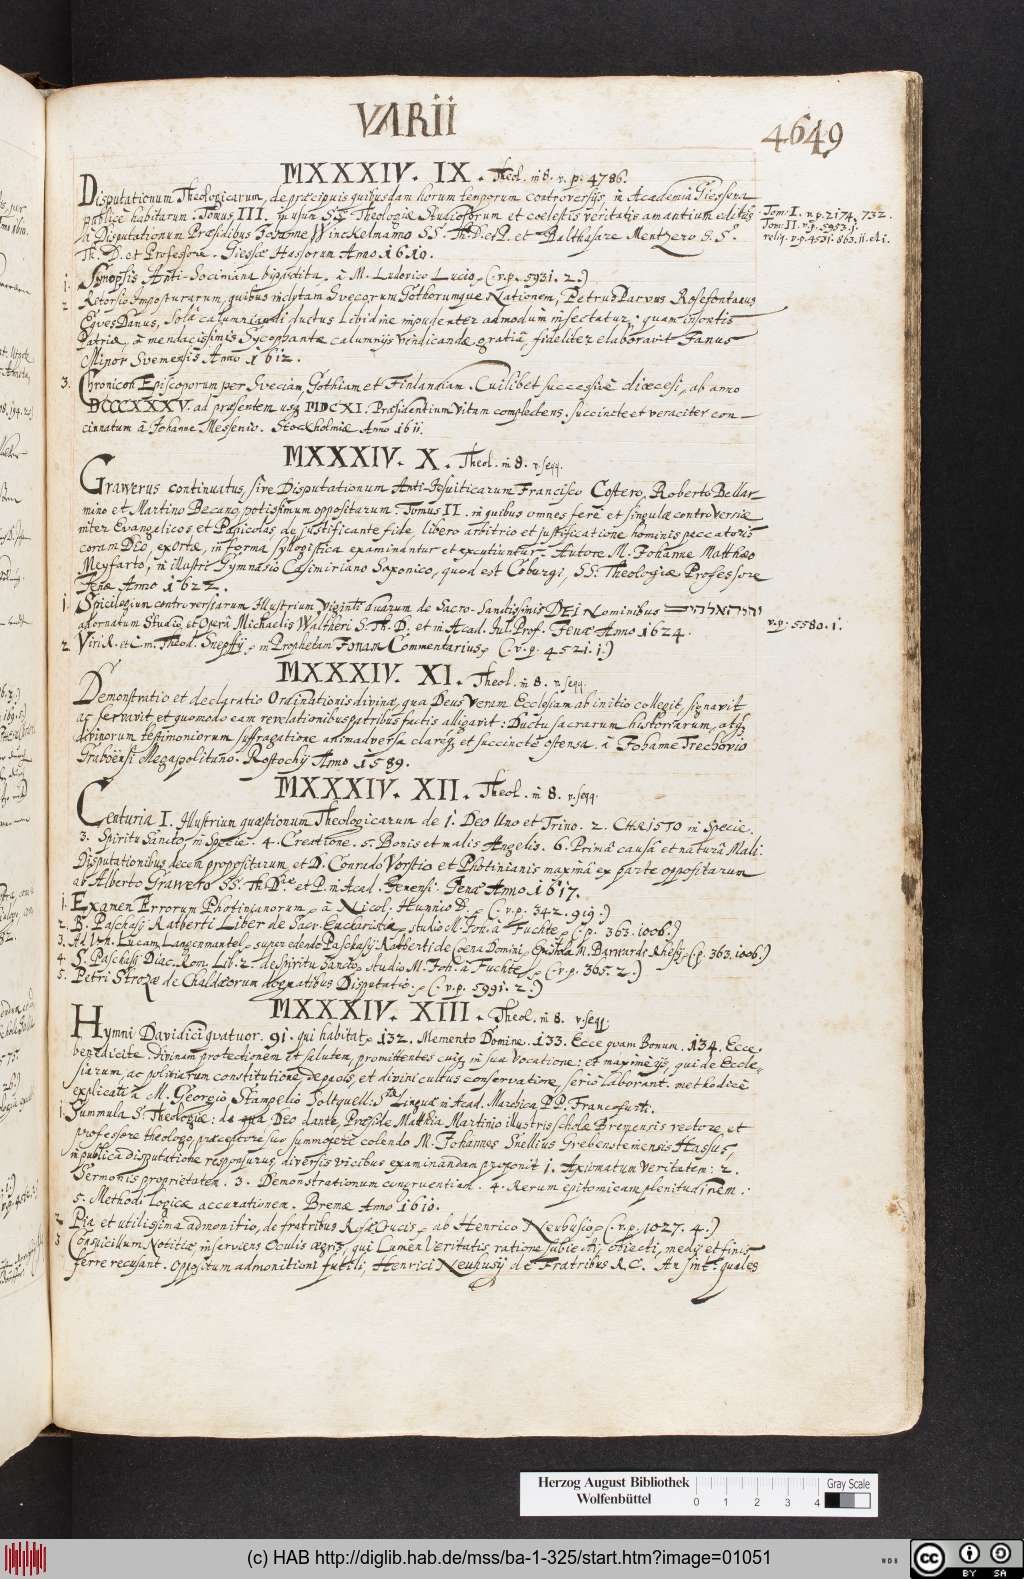 VARII
4649
MXXXIV. IX. Theol. in 8. v. p. 4786.
Disputationum Theologicarum, de præcipuis quibusdam horum temporum controversijs, in Academia Giessena
publicè habitarum. Tomus III. in usum SS. Theologiæ Studiosorum et coelestis veritatis amantium editus
Disputationum Præsidibus Johanne Winckelmanno SS. Th. D. et P. et Balthasare Mentzero S. S.
Th. D. et Professore. Giessæ Hassorum Anno 1610.
Tom: I. v. p. 2174, 732.
Tom: II. v. p. 5953. 1.
reliq. v. p. 4531. 863. 11. et 1.
1. Synopsis Anti-Sociniana bipartita, â M. Ludovico Lucio, (. v. p. 5931. 2.)
2. Retorsio Imposturarum, quibus inclytam Svecorum Gothorumque Nationem, Petrus Parvus Rosefontanus
Eques Danus, Solâ calumniandi ductus Libidine impudenter admodum insectatur: quam insontis
Patriæ, â mendacissimis Sycophantæ calumnijs vindicandæ gratiâ, fideliter elaboravit Janus
Minor Svemensis Anno 1612.
3. Chronicon Episcoporum per Sveciam, Gothiam et Finlandiam. Cuilibet successivè dioecesi, ab anno
DCCCXXXV. ad præsentem usq MDCXI. Præsidentium Vitam complectens. succinctè et veraciter con-
cinnatum â Johanne Messenio. Stockholmiæ Anno 1611.
MXXXIV. X. Theol. in 8. v. seqq.
Grawerus continuatus, sive Disputationum Anti-Jesuiticarum Francisco Costero, Roberto Bellar-
mino et Martino Becano, potissimum oppositarum. Tomus II. in quibus omnes ferè et singulæ controversiæ
inter Evangelicos et Papicolas de justificante fide, libero arbitrio et justificatione hominis peccatoris
coram DEO, exortæ, in forma syllogistica examinantur et excutiuntur. Autore M. Johanne Matthæo
Meyfarto, in illustri Gymnasio Casimiriano Saxonico, quod est Coburgi, SS. Theologiæ Professore
Jenæ Anno 1622.
1. Spicilegium controversiarum Illustrium viginti duarum de Sacro-Sanctissimis DEI Nominibus יהוה אלהים
adornatum Studio et Operâ Michaelis Waltheri S. Th. D. et in Acad. Jul. Prof. Jenæ Anno 1624.
v. p. 5580. 1.
2. Viri R. et Cm. Theod. Snepffij in Prophetam Jonam Commentarius, (. v. p. 4521. 1.)
MXXXIV. XI. Theol. in 8. v. seqq.
Demonstratio et declaratio Ordinationis divinæ, qua Deus veram Ecclesiam ab initio collegit, signavit
ac servavit, et quomodo eam revelationibus patribus factis alligavit: Ductu sacrarum historiarum, atq
divinorum testimoniorum suffragatione animadversa clareq et succinctè ostensa. â Johanne Trechovio
Gruböensi Megapolitano. Rostochij Anno 1589.
MXXXIV. XII. Theol. in 8. v. seqq.
Centuria I. Illustrium quæstionum Theologicarum de 1. Deo Uno et Trino. 2. CHRISTO in Specie.
3. Spiritu Sancto, in Specie. 4. Creatione. 5. Bonis et malis Angelis. 6. Primâ causâ et naturâ Mali.
Disputationibus decem propositarum, et D. Conrado Vorstio et Photinianis maximâ ex parte oppositarum
ab Alberto Grawero SS. Th. Dre et P. in Acad. Jenensi. Jenæ Anno 1617.
1. Examen Errorum Photinianorum, â Nicol. Hunnio D. (. v. p. 342. 919.)
2. B. Paschasij Ratberti Liber de Sacr. Eucharistiæ, studio M. Joh. â Fuchte, (. p. 363. 1006.)
3. Ad Vn. Lucam Langenmantel, super edendo Paschasij Ratberti de Coena Domini, Epistola M. Barwardi Rhesij (p. 363. 1006.)
4. S. Paschasij Diac. Rom. Lib. 2. de Spiritu Sancto, studio M. Joh. â Fuchte, (. v. p. 365. 2.)
5. Petri Strozæ de Chaldæorum dogmatibus Disputatio. (. v. p. 5991. 2.)
MXXXIV. XIII. Theol. in 8. v. seqq.
Hymni Davidici quatuor. 91. qui habitat, 132. Memento Domine. 133. Ecce quam Bonum. 134. Ecce.
benedicite. Divinam protectionem et salutem, promittentes cuiq in sua Vocatione: et maximè ijs, qui de Eccle-
siarum, ac politiarum constitutione, de pacis, et divini cultus conservatione, seriò laborant. methodicè
explicati â M. Georgio Stampelio Soltquell. Sctæ Linguæ in Acad. Marchica P. P. Francofurti.
1. Summula S. Theologiæ: de qua Deo dante, Præside Matthia Martinio illustris scholæ Bremensis rectore, et
professore theologo, præceptore suo summopere colendo M. Johannes Snellius Grebensteinensis Hassus,
in publica disputatione responsurus, diversis vicibus examinandam proponit 1. Axiomatum Veritatem: 2.
Sermonis proprietatem. 3. Demonstrationum congruentiam. 4. Rerum epitomicam plenitudinem:
5. Methodi Logicæ accurationem. Bremæ Anno 1610.
2. Pia et utilissima admonitio, de fratribus RosæCrucis, ab Henrico Neuhusio, (. v. p. 1027. 4.)
3. Conspicillum Notitiæ, inserviens Oculis ægris, qui Lumen Veritatis ratione subiecti, obiecti, medij et finis
ferre recusant. Oppositum admonitioni futili, Henrici Neuhusij de Fratribus R. C. An sint: quales
Herzog August Bibliothek
Wolfenbüttel
0 1 2 3 4
Gray Scale
(c) HAB http://diglib.hab.de/mss/ba-1-325/start.htm?image=01051
WDB
cc BY SA